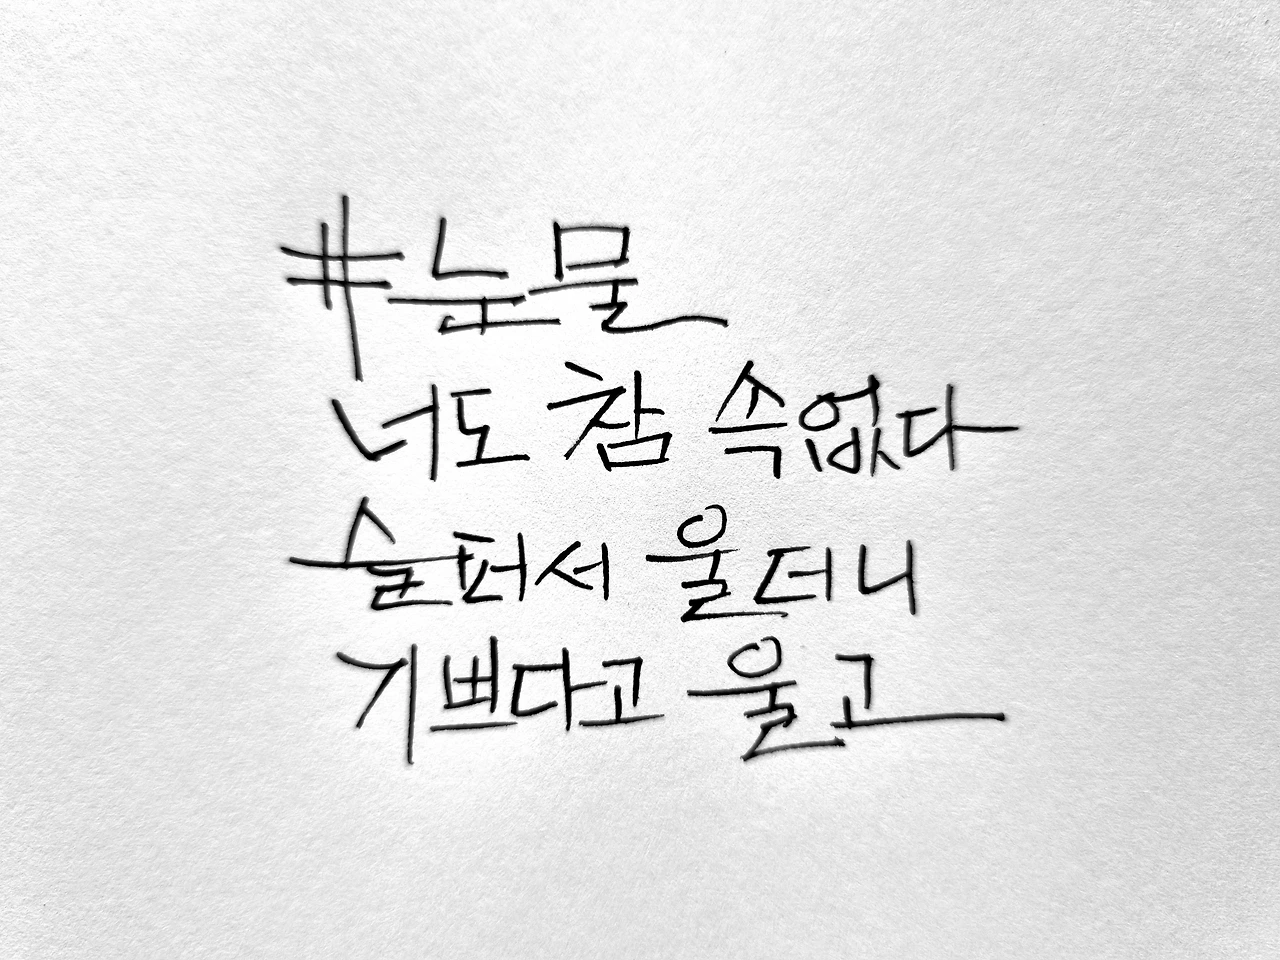 #눈물
너도 참 속없다
슬퍼서 울더니
기쁘다고 울고